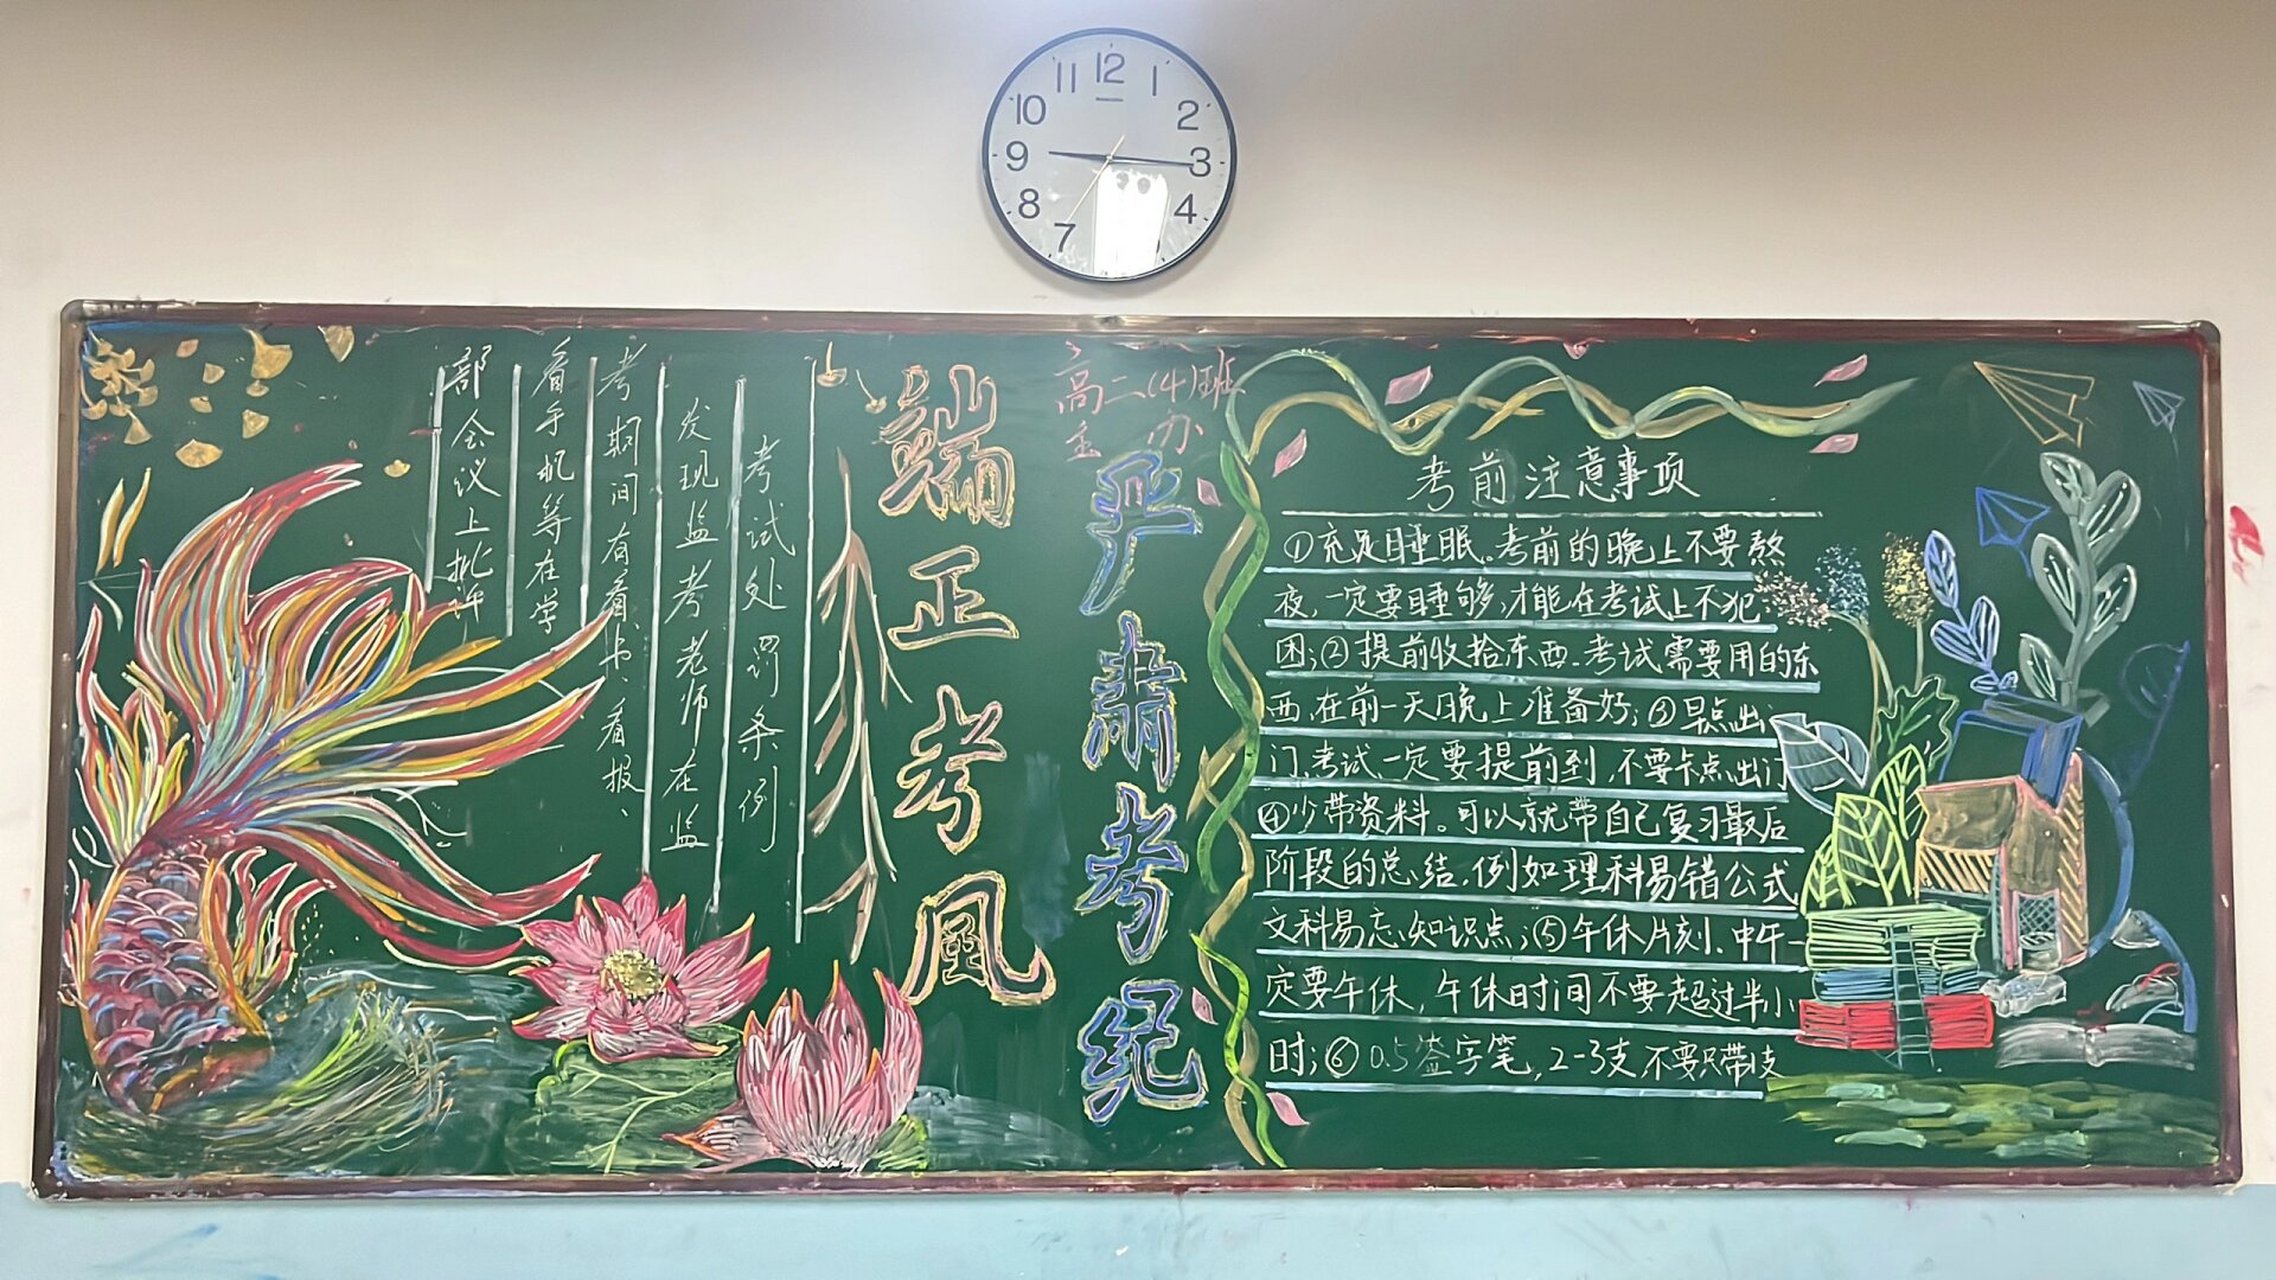 12
1
2
3
4
7
8
9
10
11
高二(4)班
主办
端正考风
严肃考纪
考试处罚条例
发现监考老师在监
考期间有看书、看报、
看手机等在学
部会议上批评
考前注意事项
①充足睡眠。考前的晚上不要熬
夜,一定要睡够,才能在考试上不犯
困;②提前收拾东西.考试需要用的东
西,在前一天晚上准备好;③早点出
门,考试一定要提前到,不要卡点出门
④少带资料。可以就带自己复习最后
阶段的总结,例如理科易错公式
文科易忘知识点;⑤午休片刻.中午一
定要午休,午休时间不要超过半小
时;⑥0.5签字笔,2-3支不要只带1支